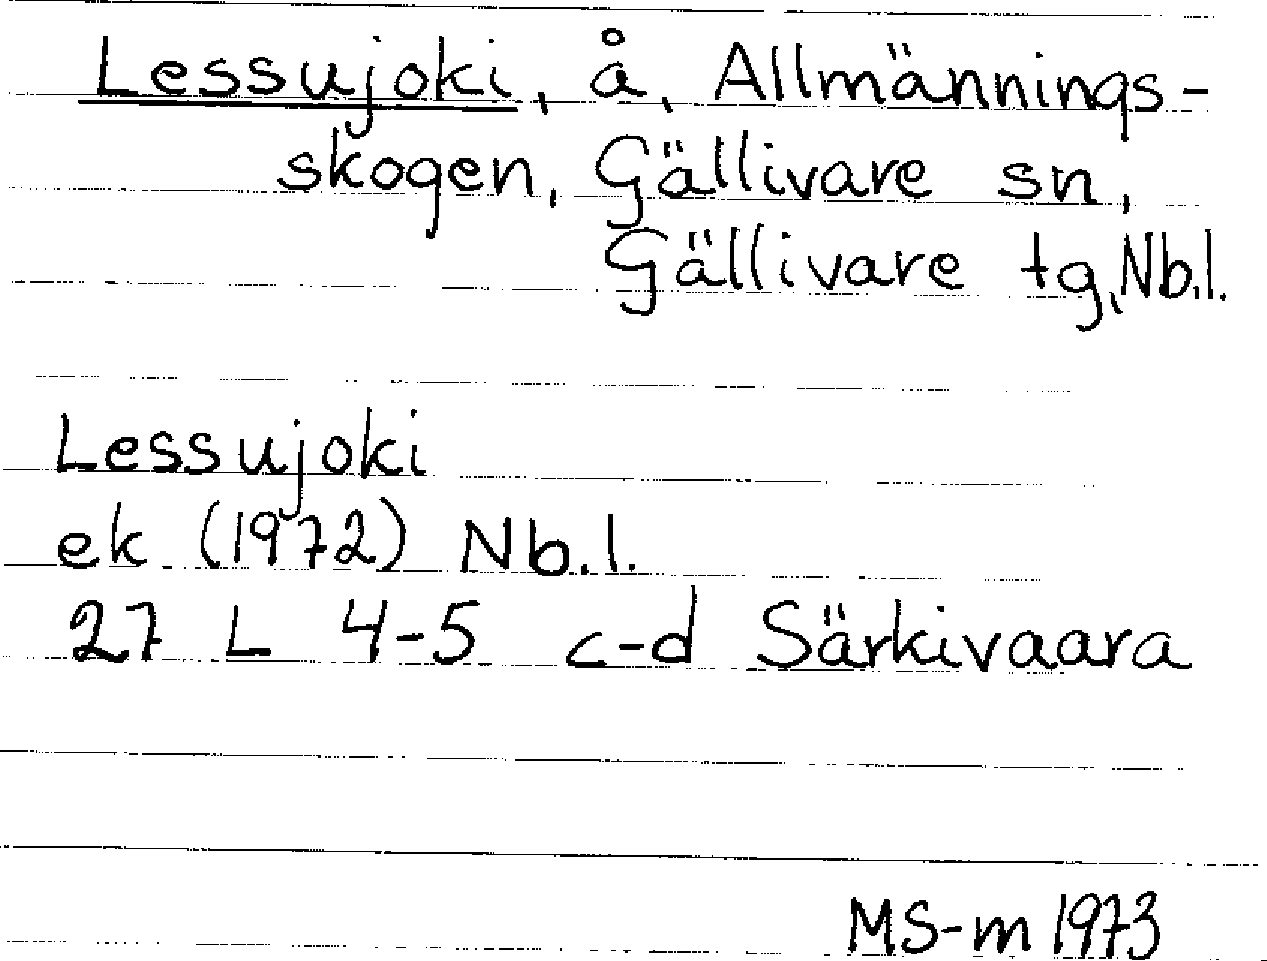 Lessujoki, å, Allmännings-
skogen, Gällivare sn,
Gällivare tg, Nb.l.
Lessujoki
ek (1972) Nb.l.
27 L 4-5 c-d Särkivaara
MS-m 1973